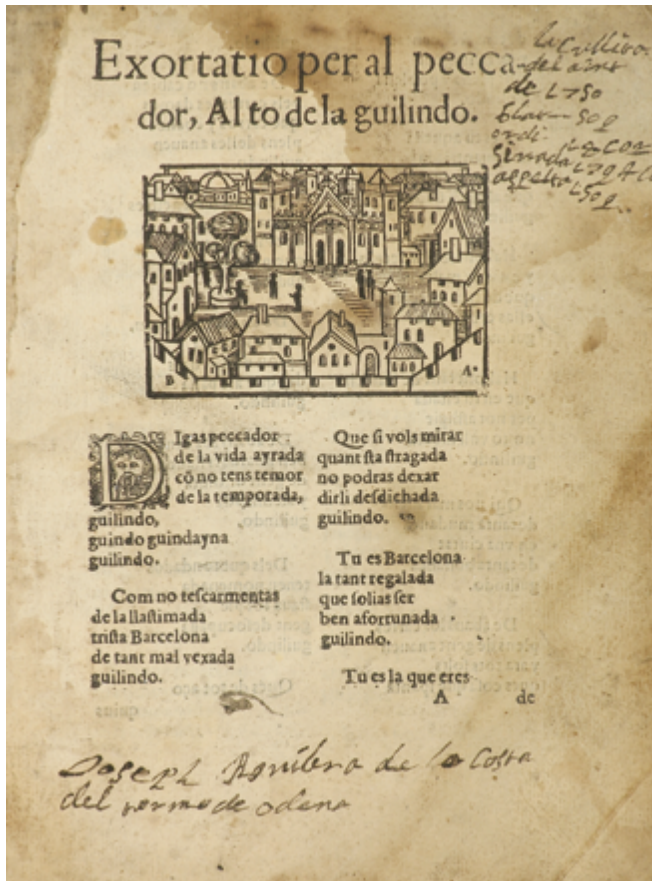 Exortatio per al pecca
dor, Al to de la guilindo.
de 1750
B
A
DIgas peccador
de la vida ayrada
cō no tens temor
de la temporada,
guilindo,
guindo guindayna
guilindo.
Com no tescarmentas
de la llastimada
trista Barcelona
de tant mal vexada
guilindo.
Que si vols mirar
quant sta stragada
no podras dexar
dirli desdichada
guilindo.
Tu es Barcelona
la tant regalada
que solias ser
ben afortunada
guilindo.
Tu es la que eres
A de
Joseph de la Costa
del termo de odena